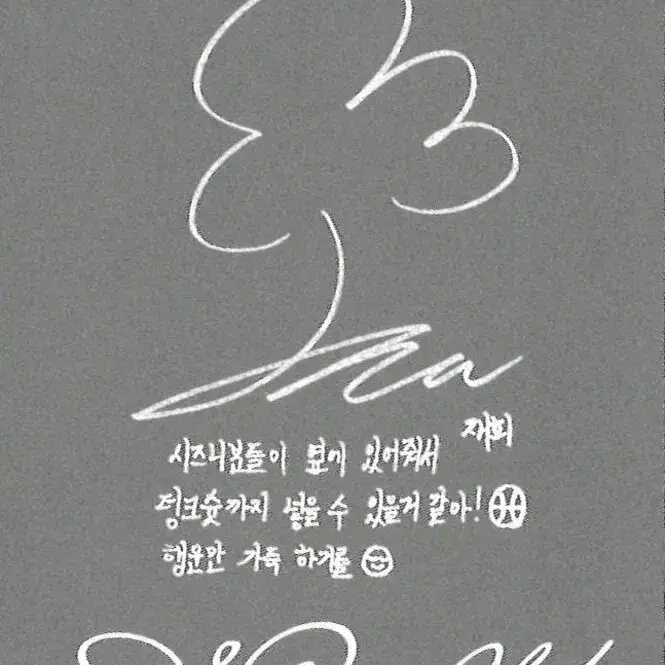 재희
시즈니분들이 옆에 있어줘서
덩크슛까지 넣을 수 있을거 같아!
행운만 가득 하기를